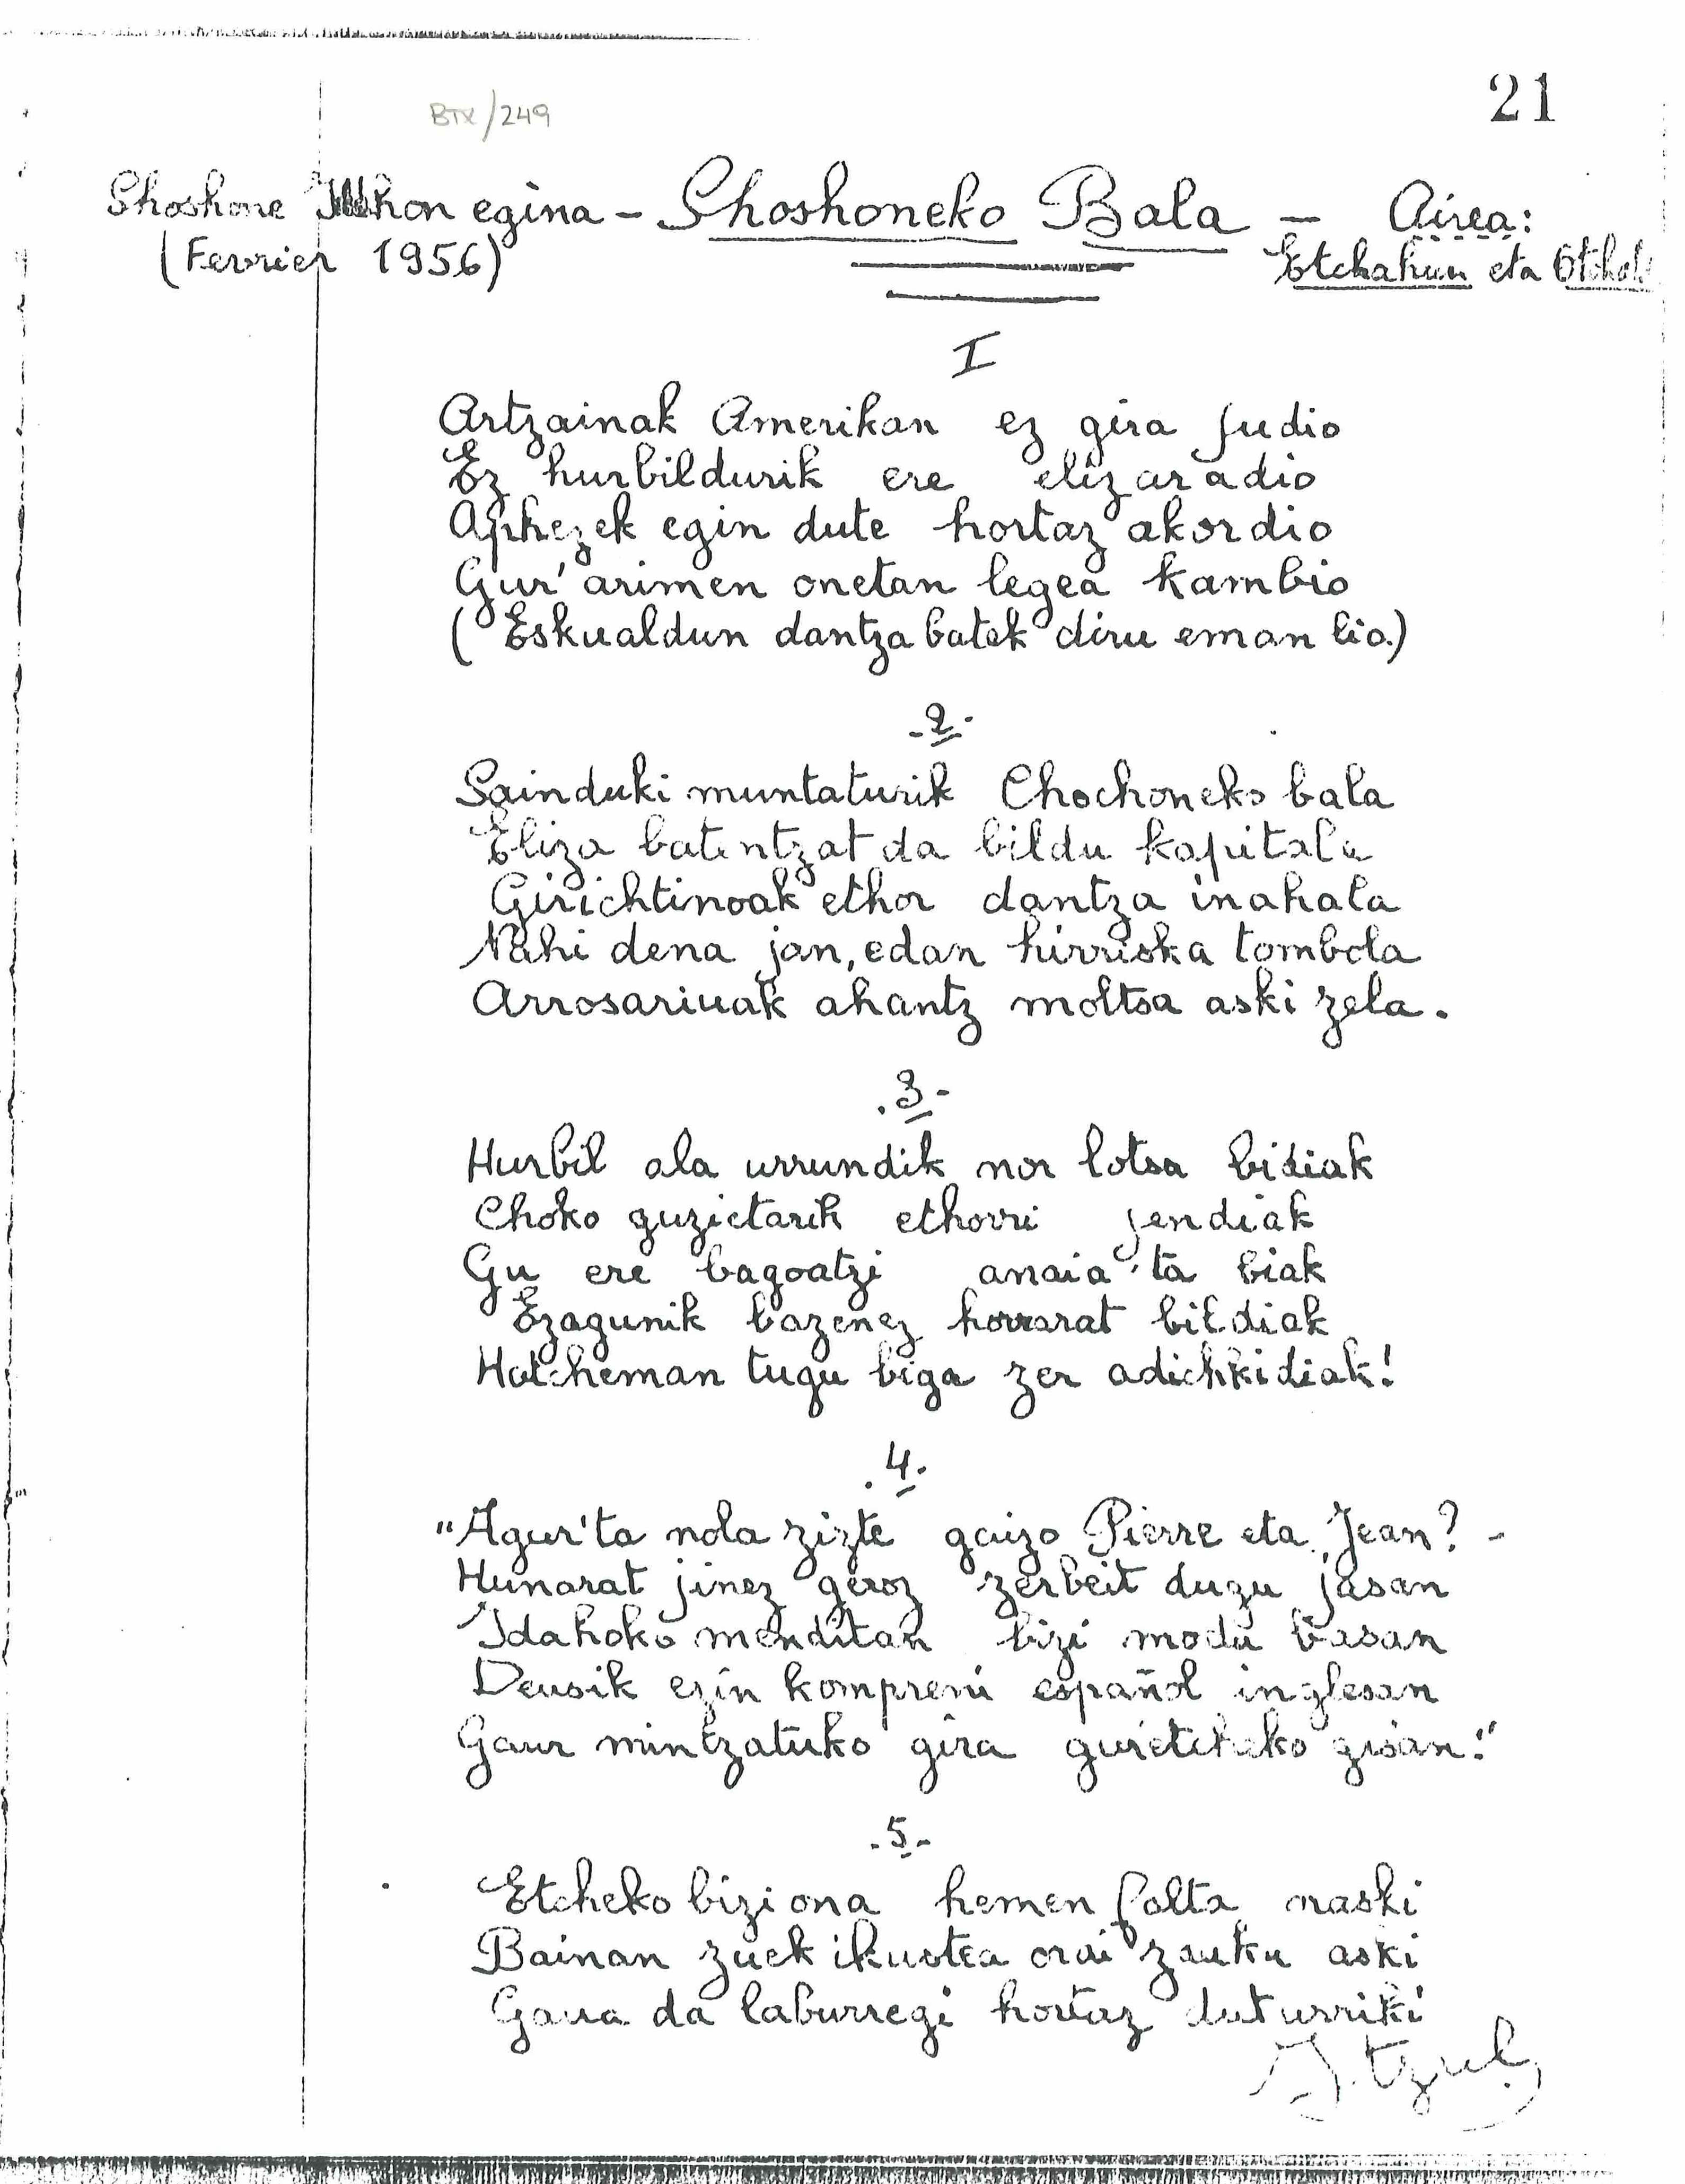 21
BTX/249
Shoshone Idahon egina - Shoshoneko Bala - Airea:
(Fevrier 1956) Etchahun eta Otchal
I
Artzainak Amerikan ez gira judio
Ez hurbildurik ere elizaradio
Aphezek egin dute hortaz akordio
Gur' arimen onetan legea kambio
(Eskualdun dantza batek diru eman lio.)
.2.
Sainduki muntaturik Chochoneko bala
Eliza batentzat da bildu kapitala
Girichtinoak ethor dantza inahala
Nahi dena jan, edan hirriska tombola
Arrosariuak ahantz moltsa aski zela.
.3-
Hurbil ala urrundik nor lotsa bidiak
Choko guzietarik ethorri jendiak
Gu ere bagoatzi anaia 'ta biak
Ezagunik bazenez horrarat bildiak
Hatcheman tugu biga zer adichkidiak!
.4.
"Agur'ta nola zizte gaizo Pierre eta Jean? -
Hunarat jinez geroz zerbeit duzu jasan
Idahoko menditan bizi modu basan
Deusik ezin kompreni español inglesan
Gaur mintzatuko gira gur'etcheko gisan."
.5-
Etcheko bizi ona hemen falta naski
Bainan zuek ikustea orai zauku aski
Gaua da laburregi hortaz dut urriki
Itzul